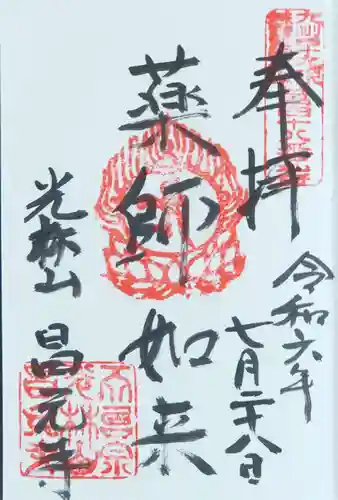 奉拝
令和六年
七月二十八日
薬師如来
光林山
昌元寺